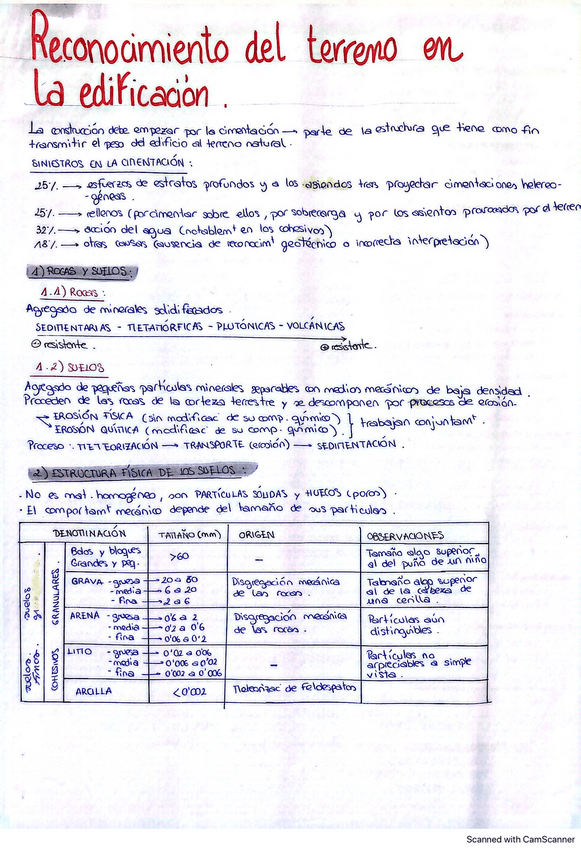 Reconocimiento del terreno en
la edificación.
La construcción debe empezar por la cimentación → parte de la estructura que tiene como fin
transmitir el peso del edificio al terreno natural.
SINIESTROS EN LA CIMENTACIÓN:
25% → esfuerzos de estratos profundos y a los asientos tras proyectar cimentaciones hetereo-
-géneas.
25% → rellenos (por cimentar sobre ellos, por sobrecarga y por los asientos provocados por el terren
32% → acción del agua (notablemt en los cohesivos)
18% → otras causas (ausencia de reconocimt geotécnico o incorrecta interpretación)
1) ROCAS Y SUELOS:
1.1) Rocas:
Agregado de minerales solidificados.
SEDIMENTARIAS - METAMÓRFICAS - PLUTÓNICAS - VOLCÁNICAS
⊖ resistente. ⊕ resistente.
1.2) SUELOS
Agregado de pequeñas partículas minerales separables con medios mecánicos de baja densidad.
Proceden de las rocas de la corteza terrestre y se descomponen por procesos de erosión.
→ EROSIÓN FÍSICA (sin modificac de su comp. químico)
→ EROSÓN QUÍTICA (modificac de su comp. químico). } trabajan conjuntamt.
Proceso: METEORIZACIÓN → TRANSPORTE (erosión) → SEDIMENTACIÓN.
2) ESTRUCTURA FÍSICA DE LOS SUELOS:
- No es mat. homogéneo, son PARTÍCULAS SÓLIDAS y HUECOS (poros).
- El comportamt mecánico depende del tamaño de sus partículas.
DENOMINACIÓN TAMAÑO (mm) ORIGEN OBSERVACIONES
suelos
GRANULARES.
Bolos y bloques
Grandes y peq. >60 - Tamaño algo superior
al del puño de un niño
GRAVA - gruesa → 20 a 60 Disgregación mecánica Tabmaño algo superior
- media → 6 a 20 de las rocas. al de la cabeza de
- fina → 2 a 6 una cerilla.
ARENA - gruesa → 0'6 a 2 Disgregación mecánica Partículas aún
- media → 0'2 a 0'6 de las rocas. distinguibles.
- fina → 0'06 a 0'2
suelos finos.
COHESIVOS
LITIO - gruesa → 0'02 a 0'06 - Partículas no
- media → 0'006 a 0'02 apreciables a simple
- fina → 0'002 a 0'006 vista.
ARCILLA <0'002 Meteorizac de Feldespatos
Scanned with CamScanner